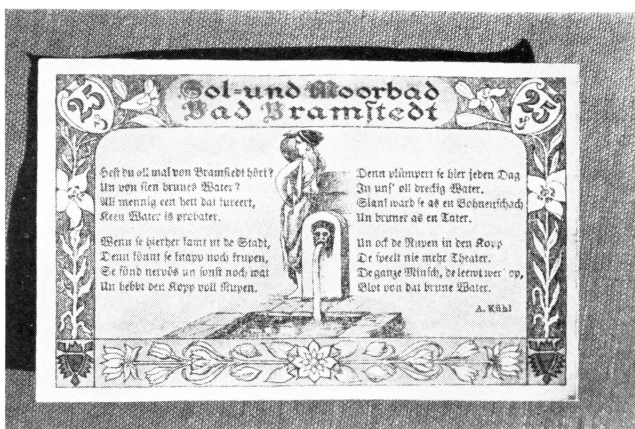 25
Sol=und Moorbad
Bad Bramstedt
25
Hest du all mal von Bramstedt hört?
Un von sien brunes Water?
All mennig een hett dat kureert,
Keen Water is probater.
Wenn se hierher kamt ut de Stadt,
Denn könnt se knapp noch krupen,
Se sünd nervös un sonst noch wat
Un hebbt den Kopp voll Rupen.
Denn plümpert se hier jeden Dag
In uns' oll dreckig Water.
Slank ward se as en Bohnenschach
Un bruner as en Tater.
Un ock de Rupen in den Kopp
De speelt nie mehr Theater.
De ganze Minsch, de leewt wer' op,
Blot von dat brune Water.
A. Kühl